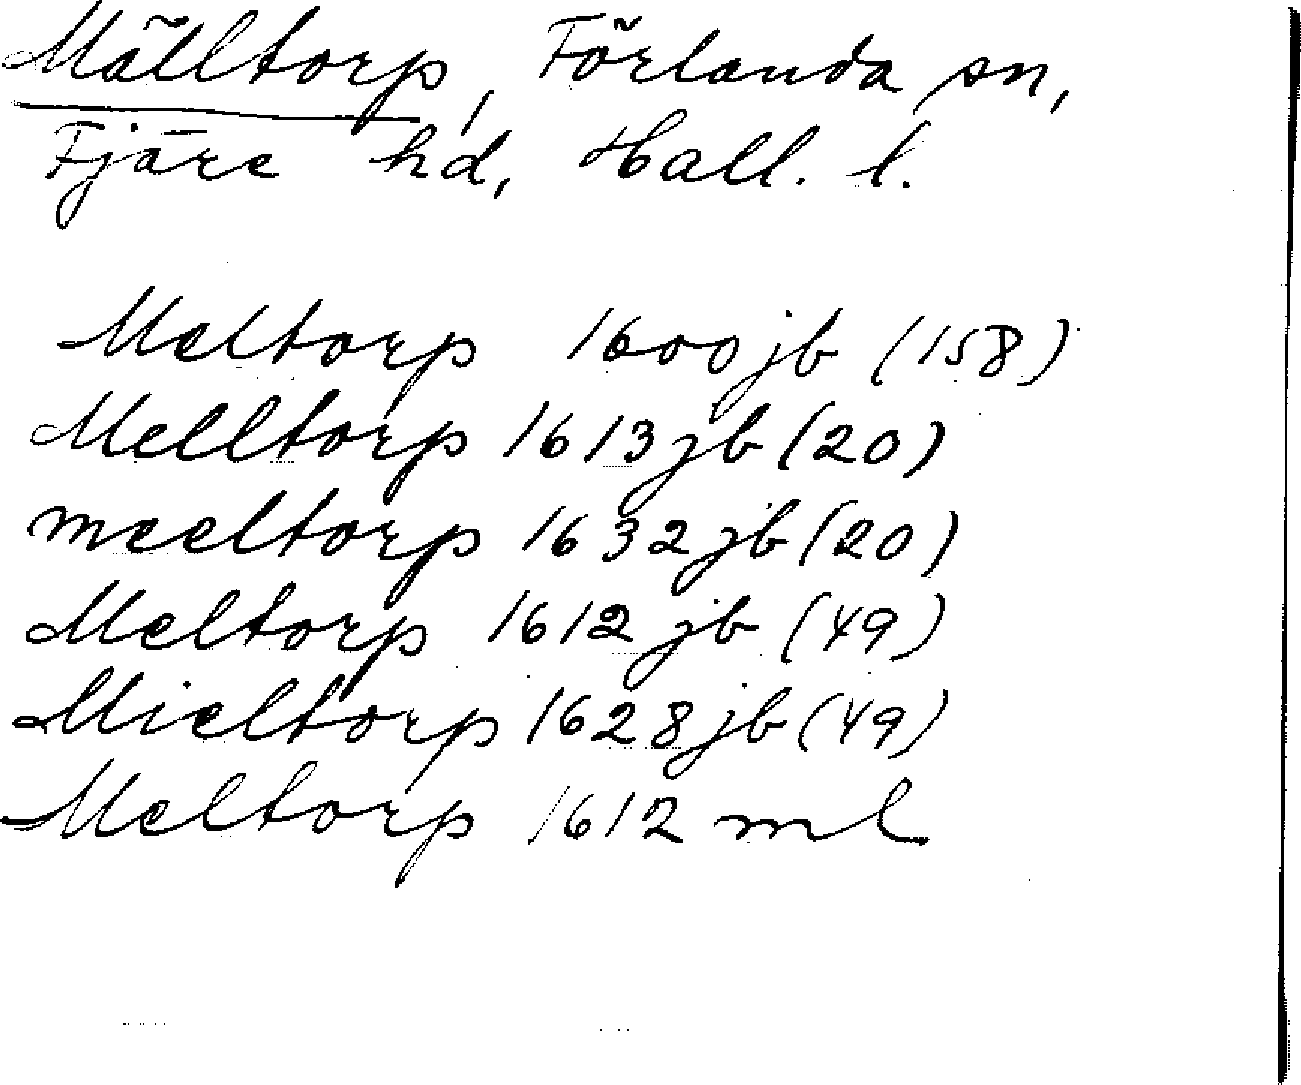 Mälltorp, Förlanda sn,
Fjäre hd, Hall. l.
Meltorp 1600 jb (158)
Melltorp 1613 jb (20)
meeltorp 1632 jb (20)
Meltorp 1612 jb (49)
Mieltorp 1628 jb (49)
Meltorp 1612 ml